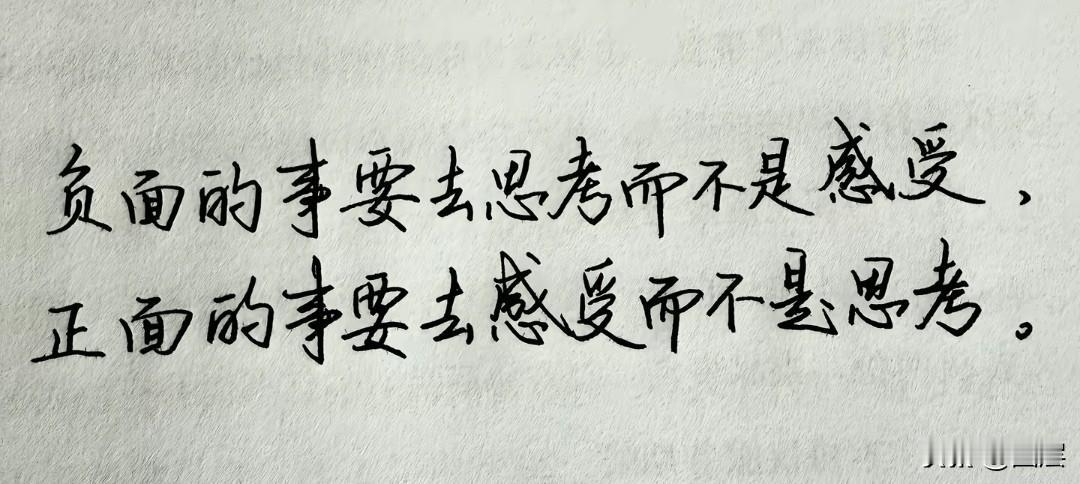 负面的事要去思考而不是感受，
正面的事要去感受而不是思考。